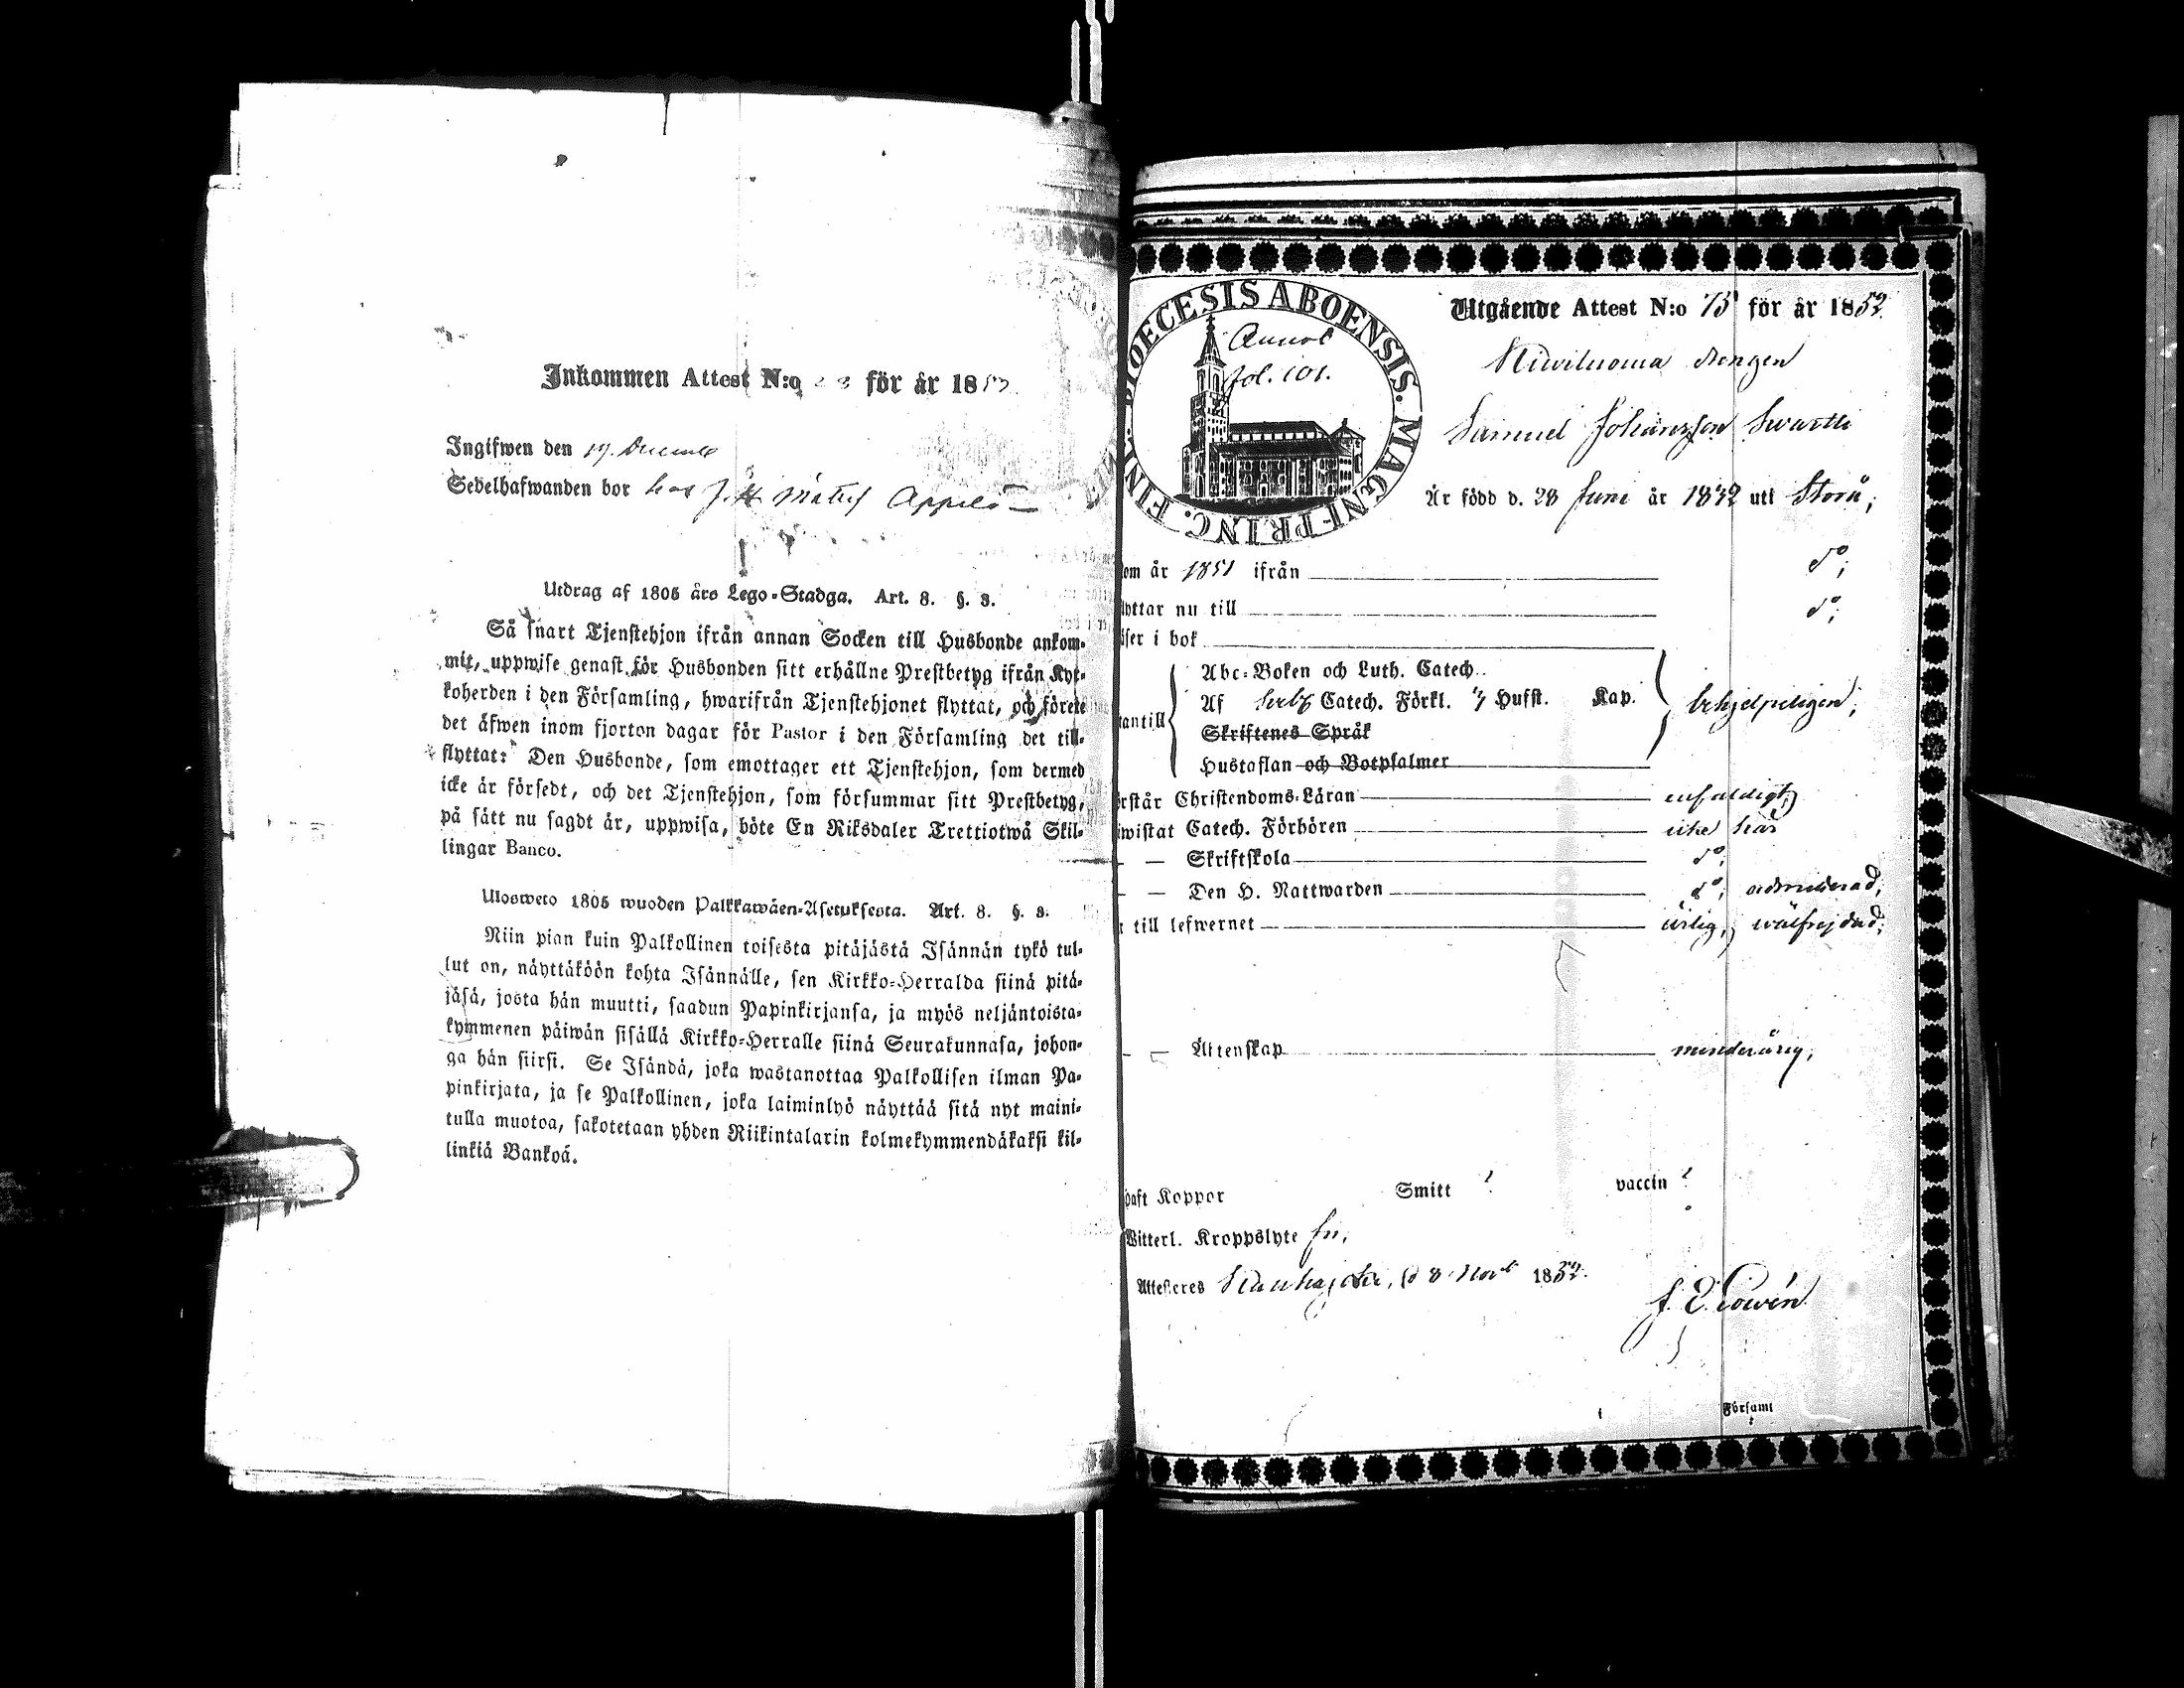 Inkommen Attest N:o 28 för år 1852
Ingifwen den 19. Decemb
Sedelhafwanden bor hos J. H. Appelö
Utdrag af 1805 års Lego-Stadga. Art. 8. §. 3.
Så snart Tjenstehjon ifrån annan Socken till Husbonde ankom-
mit, uppwise genast för Husbonden sitt erhållne Prestbetyg ifrån Kyr-
koherden i den Församling, hwarifrån Tjenstehjonet flyttat, och förete
det äfwen inom fjorton dagar för Pastor i den Församling det till-
flyttat: Den Husbonde, som emottager ett Tjenstehjon, som dermed
icke är försedt, och det Tjenstehjon, som försummar sitt Prestbetyg,
på sätt nu sagdt är, uppwisa, böte En Riksdaler Trettiotwå Skil-
lingar Banco.
Ulosweto 1805 wuoden Palkkawäen-Asetuksesta. Art. 8. §. 3.
Niin pian kuin Palkollinen toisesta pitäjästä Isännän tykö tul-
lut on, näyttäköön kohta Isännälle, sen Kirkko-Herralda siinä pitä-
jäsä, josta hän muutti, saadun Papinkirjansa, ja myös neljäntoista-
kymmenen päiwän sisällä Kirkko-Herralle siinä Seurakunnasa, johon-
ga hän siirsi. Se Isändä, joka wastanottaa Palkollisen ilman Pa-
pinkirjata, ja se Palkollinen, joka laiminlyö näyttää sitä nyt maini-
tulla muotoa, sakotetaan yhden Riikintalarin kolmekymmendäkaksi kil-
linkiä Bankoá.
DIOECESIS ABOENSIS. MAGNI PRINC. FINL.
Annot
fol. 101.
Utgående Attest N:o 75 för år 1852
drengen
Samuel Johansson Swartti
Är född d. 28 Juni år 1832 uti Storå;
om år 1851 ifrån do;
lyttar nu till do;
äser i bok
antill
Abc-Boken och Luth. Catech.
Af Catech. Förkl. Husst. Kap. behjelpeligen;
Skriftenes Språk
Hustaflan och Botpsalmer
örstår Christendoms-Läran enfaldigt;
iwistat Catech. Förhören icke här
— Skriftskola do;
— Den H. Nattwarden do; admitterad;
till lefwernet ärlig, wälfrejdad;
— Äktenskap minderårig;
haft Koppor Smitt ? vaccin ?
Witterl. Kroppslyte fri;
Attesteres Kauhajoki, d 8 Novb 1852.
Församl